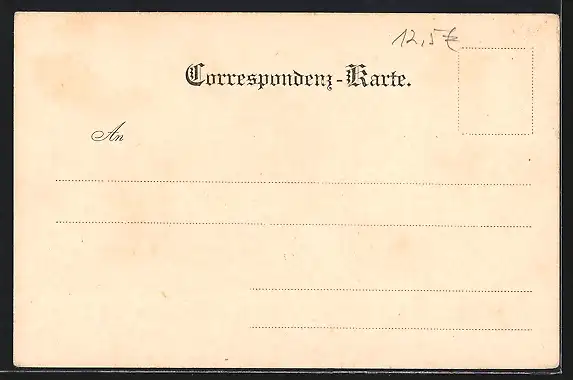 12,5€
Correspondenz-Karte.
An